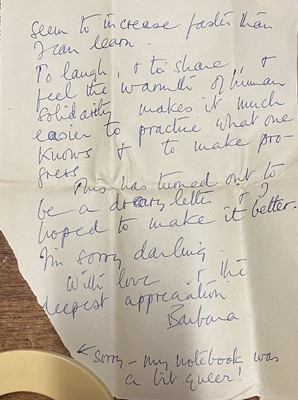 seem to increase faster than
I can learn.
To laugh, & to share, &
feel the warmth of human
solidarity makes it much
easier to practice what one
knows & to make pro-
gress.
This has turned out to
be a dreary letter & I
hoped to make it better.
I'm sorry darling.
With love & the
deepest appreciation
Barbara
← sorry - my notebook was
a bit queer!